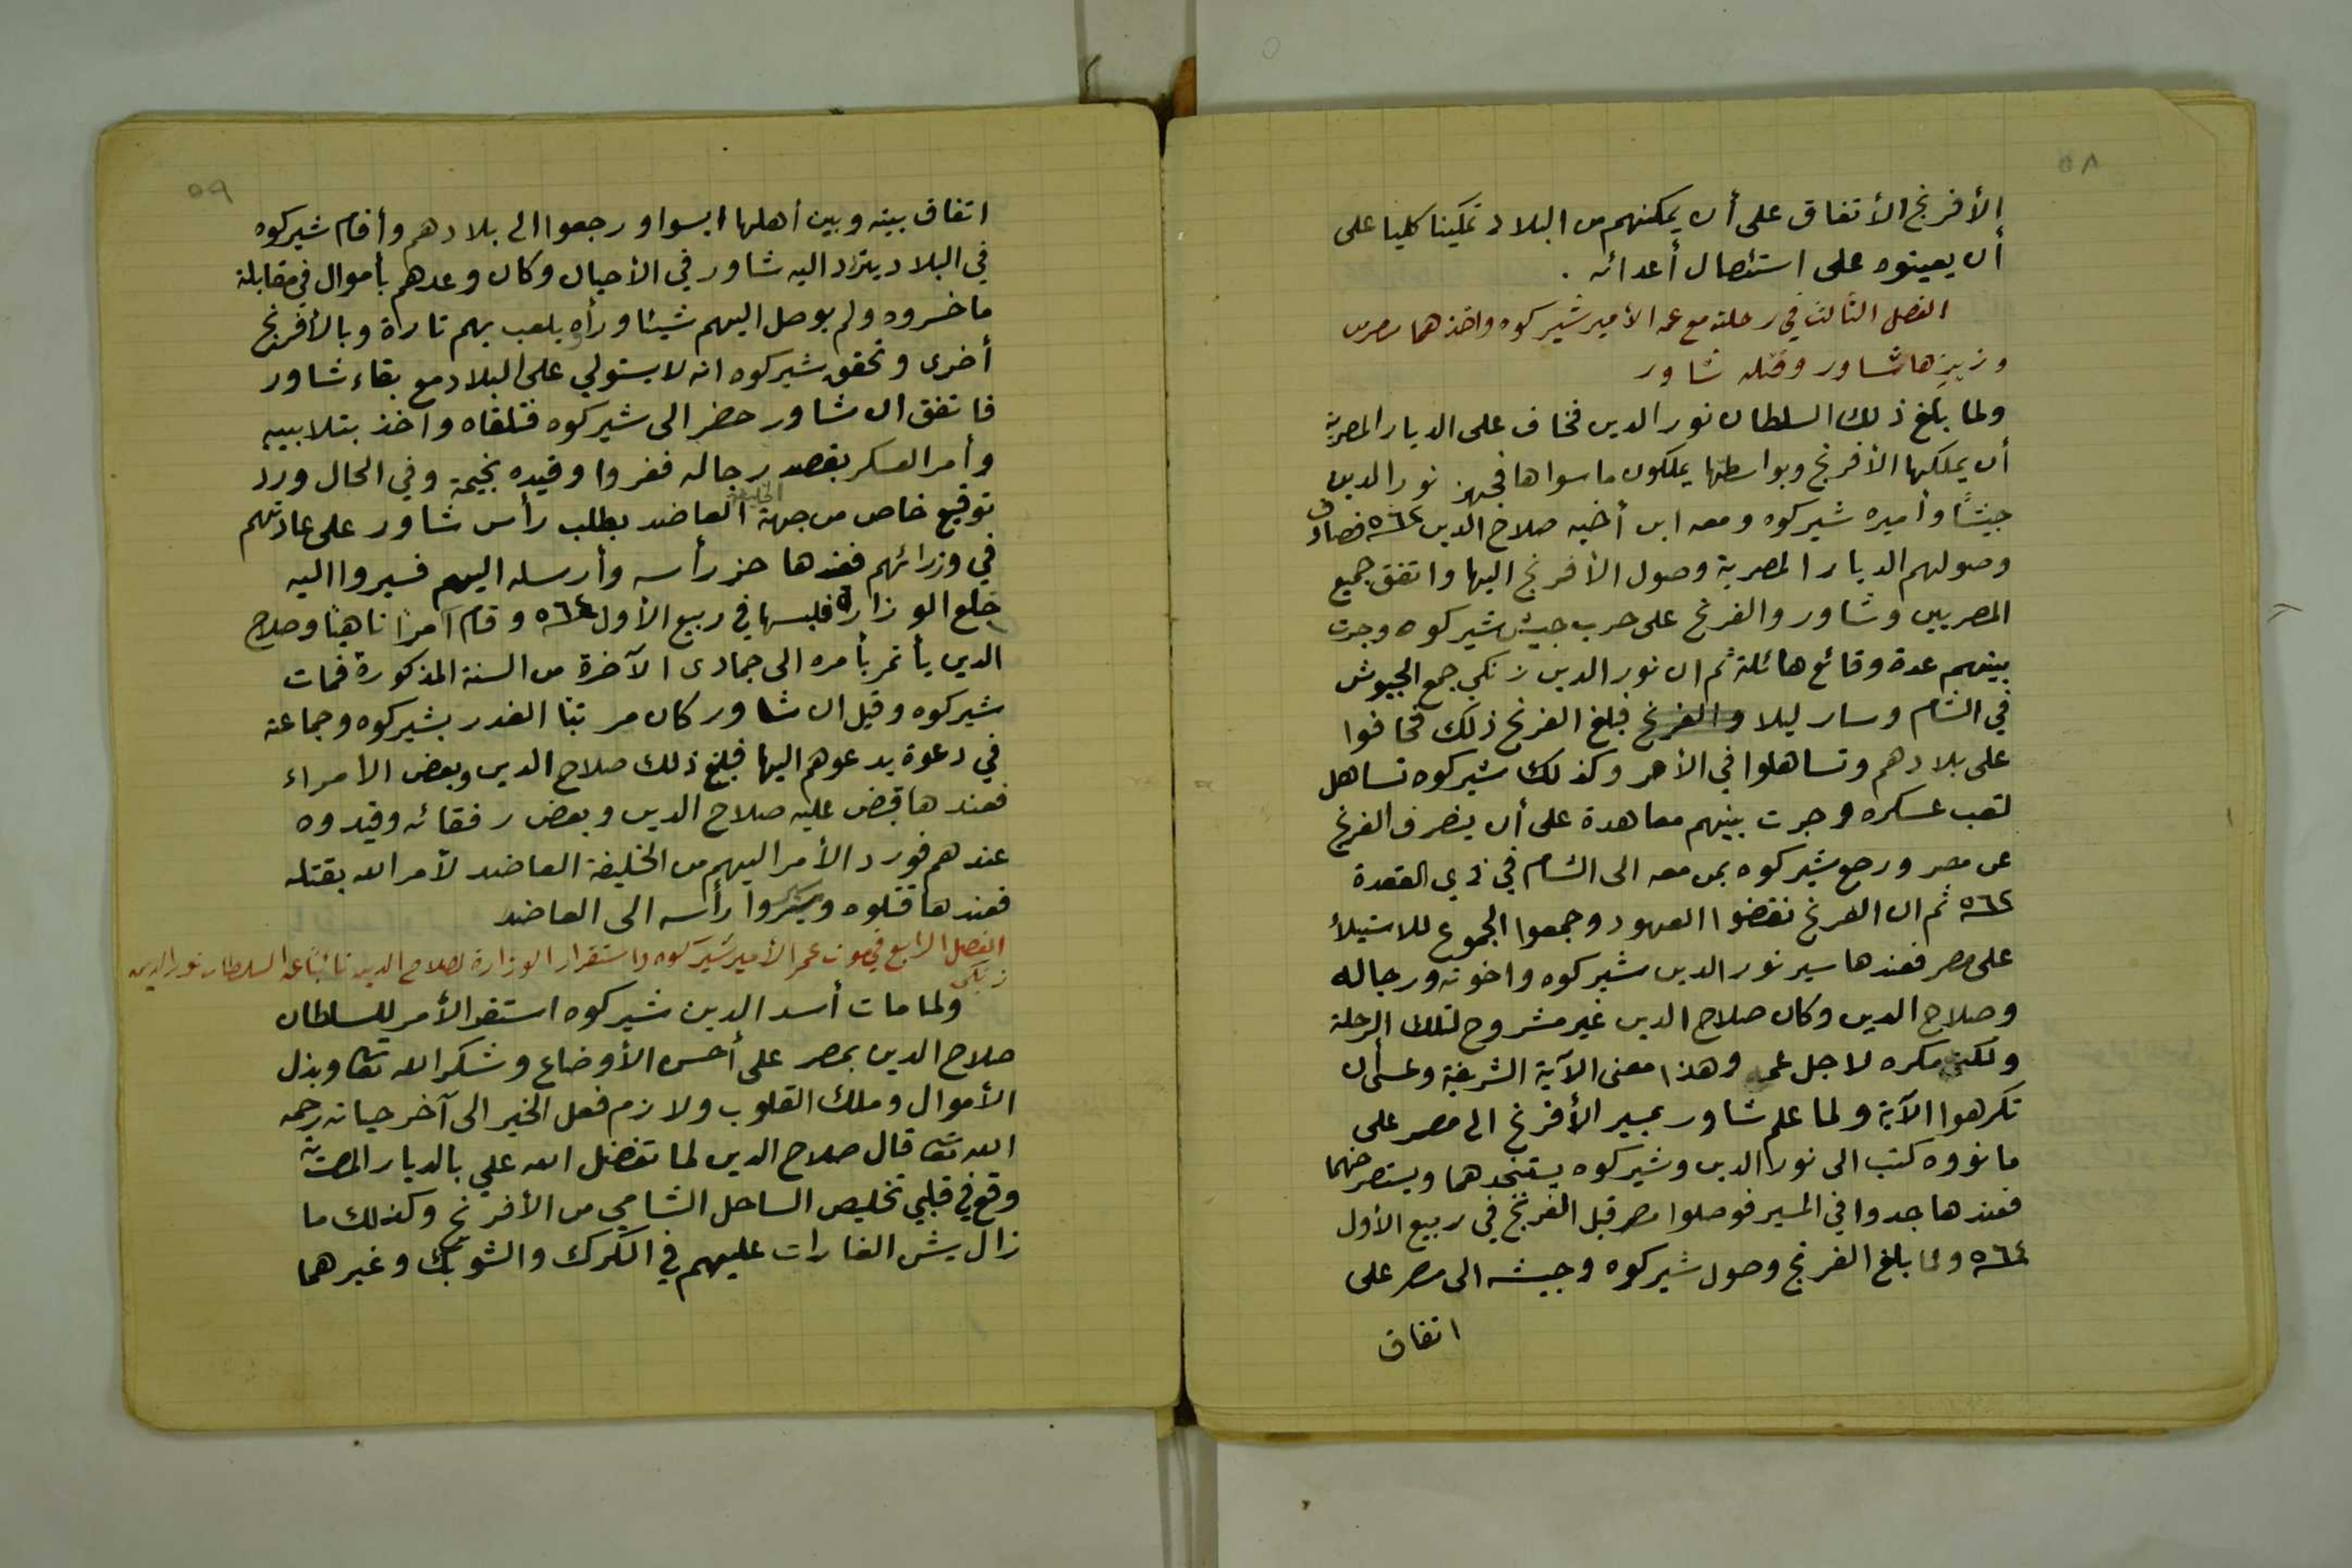 ٥٨
الأفرنج الأتفاق على أن يمكنهم من البلاد تمكينا كليا على
أن يعينوه على استئصال أعدائه .
الفصل الثالث في رحلته مع عمه الأمير شيركوه واخذهما مصر من
وزيرها شاور وقتله شاور
ولما بلغ ذلك السلطان نور الدين فخاف على الديار المصرية
أن يملكها الأفرنج وبواسطتها يملكون ما سواها فجهز نور الدين
جيشًا وأميره شيركوه ومعه ابن أخيه صلاح الدين ٥٦٢ فصادف
وصولهم الديار المصرية وصول الأفرنج اليها واتفق جميع
المصريين وشاور والفرنج على حرب جيش شيركوه وجرت
بينهم عدة وقائع هائلة ثم ان نور الدين زنكي جمع الجيوش
في الشام وسار ليلا والفرنج فبلغ الفرنج ذلك فخافوا
على بلادهم وتساهلوا في الأمر وكذلك شيركوه تساهل
لتعب عسكره وجرت بينهم معاهدة على أن ينصرف الفرنج
عن مصر ورجع شيركوه بمن معه الى الشام في ذي القعدة
٥٦٢ ثم ان الفرنج نقضوا العهود وجمعوا الجموع للاستيلأ
على مصر فعندها سير نور الدين شيركوه واخوته ورجاله
وصلاح الدين وكان صلاح الدين غير مشروح لتلك الرحلة
ولكن مكره لاجل عمه وهذا معنى الآية الشريفة وعسى أن
تكرهوا الآية ولما علم شاور بمسير الأفرنج الى مصر على
ما نووه كتب الى نور الدين وشيركوه يستنجدهما ويستصرخهما
فعندها جدوا في المسير فوصلوا مصر قبل الفرنج في ربيع الأول
٥٦٤ ولما بلغ الفرنج وصول شيركوه وجيشه الى مصر على
اتفاق
٥٩
اتفاق بينه وبين أهلها ايسوا ورجعوا الى بلادهم وأقام شيركوه
في البلاد يتردد اليه شاور في الأحيان وكان وعدهم بأموال في مقابلة
ما خسروه ولم يوصل اليهم شيئا ورأوه يلعب بهم تارة وبالأفرنج
أخرى وتحقق شيركوه انه لا يستولي على البلاد مع بقاء شاور
فاتفق ان شاور حضر الى شيركوه فتلقاه واخذ بتلابيبه
وأمر العسكر بقصد رجاله ففروا وقيده بخيمة وفي الحال ورد
توقيع خاص من جهة الخليفة العاضد بطلب رأس شاور على عادتهم
في وزرائهم فعندها حز رأسه وأرسله اليهم فسيروا اليه
خلع الوزارة فلبسها في ربيع الأول ٥٦٤ وقام آمرًا ناهيًا وصلاح
الدين يأتمر بأمره الى جمادى الآخرة من السنة المذكورة فمات
شيركوه وقيل ان شاور كان مرتبًا الغدر بشيركوه وجماعته
في دعوة يدعوهم اليها فبلغ ذلك صلاح الدين وبعض الأمراء
فعندها قبض عليه صلاح الدين وبعض رفقائه وقيدوه
عندهم فورد الأمر اليهم من الخليفة العاضد لأمر الله بقتله
فعندها قتلوه وسيروا رأسه الى العاضد
الفصل الرابع في موت عمه الأمير شيركوه واستقرار الوزارة لصلاح الدين نائبًا عن السلطان نور الدين
زنكي
ولما مات أسد الدين شيركوه استقر الأمر للسلطان
صلاح الدين بمصر على أحسن الأوضاع وشكر الله تعا وبذل
الأموال وملك القلوب ولازم فعل الخير الى آخر حياته رحمه
الله تعا قال صلاح الدين لما تفضل الله علي بالديار المصرية
وقع في قلبي تخليص الساحل الشامي من الأفرنج وكذلك ما
زال يشن الغارات عليهم في الكرك والشوبك وغيرهما